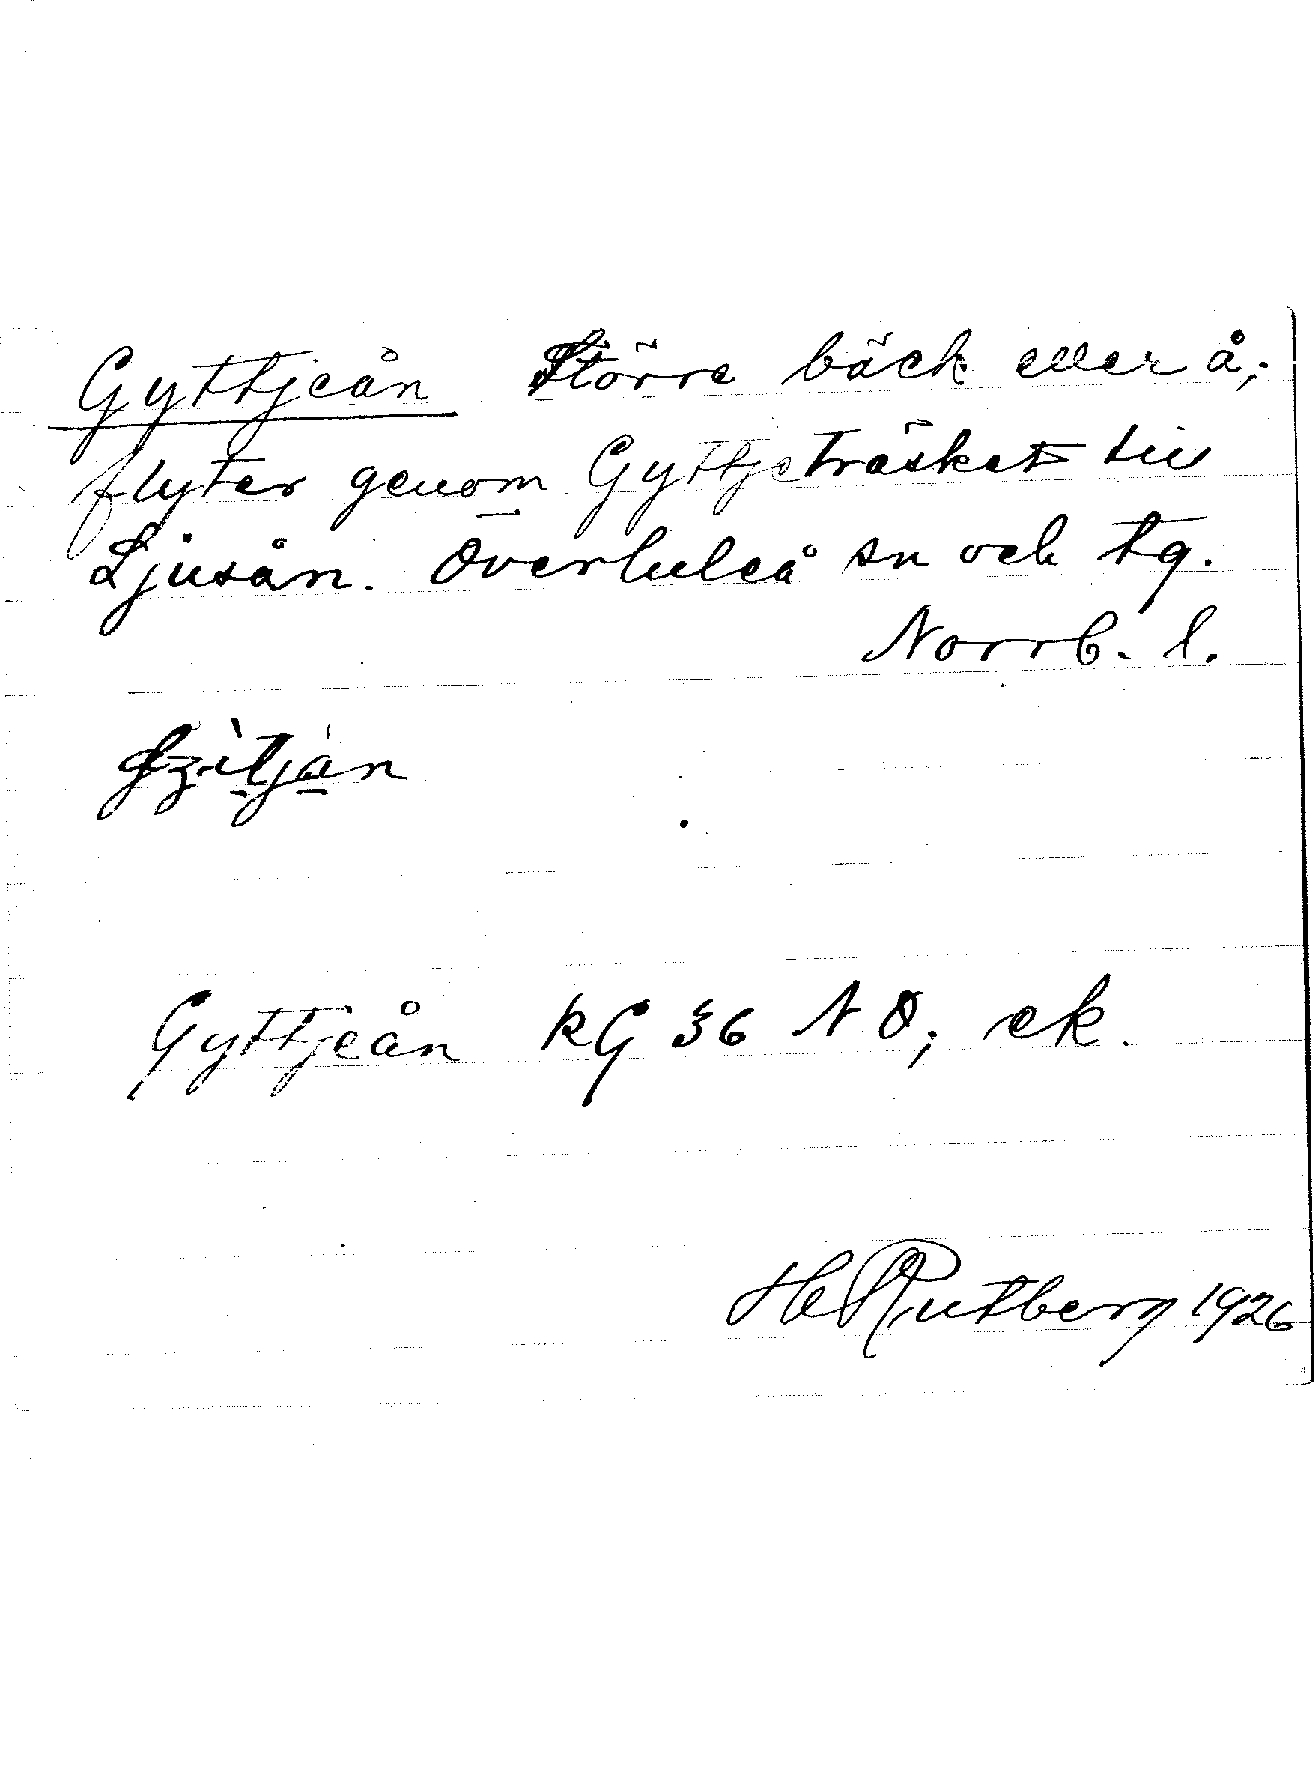 Gyttjeån Större bäck eller å;
flyter genom Gyttjeträsket till
Ljusån. Överluleå sn och tg.
Norrb. l.
Gyttjeån kG 36 NO; ek.
H Rutberg 1926